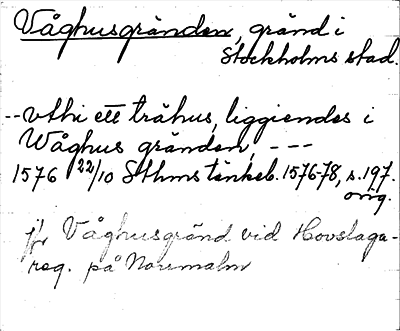 Våghusgränden, gränd i
Stockholms stad.
-- vthi ett trähus, liggiendes i
Wåghus gränden, ---
1576 22/10 Sthms tänkeb. 1576-78, s. 197.
orig.
jfr Våghusgränd vid Hovslaga-
reg. på Norrmalm